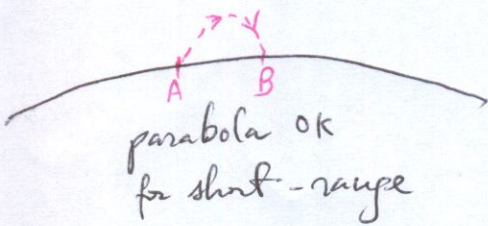 A B
parabola OK
for short-range